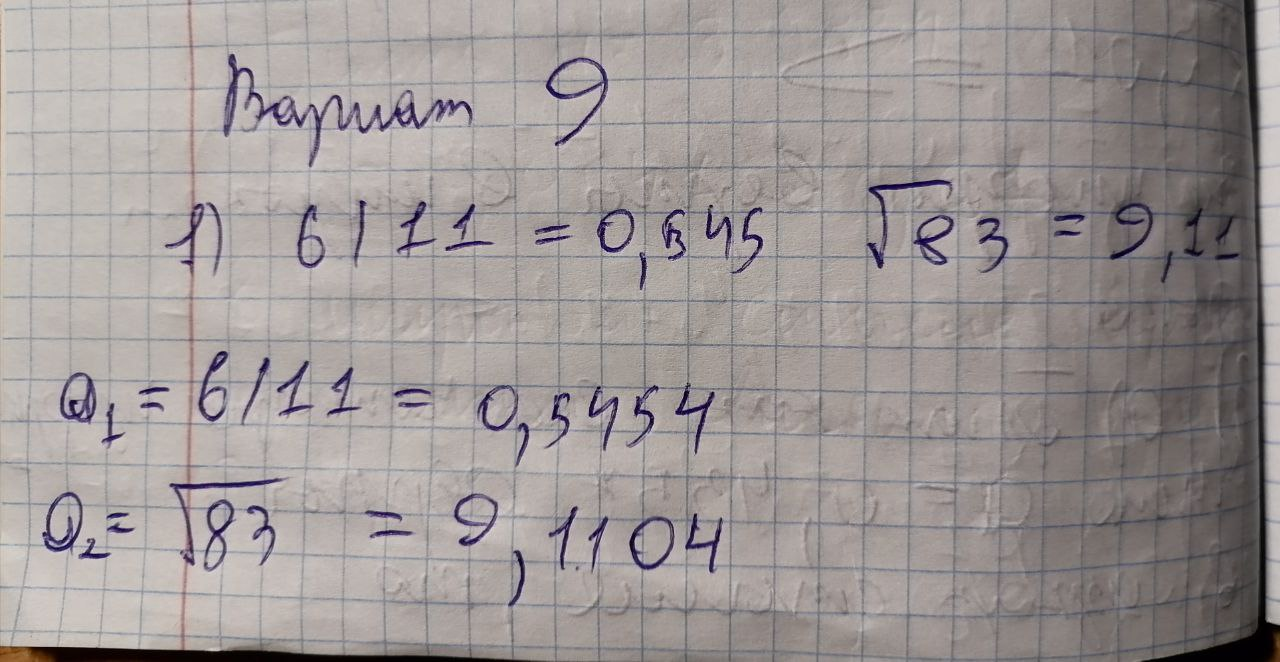 Вариат 9
1) 6/11 = 0,545 √83 = 9,11
a₁ = 6/11 = 0,5454
a₂ = √83 = 9,1104